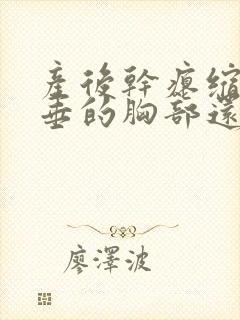 產後幹癟縮
垂的胸部還
廖澤波